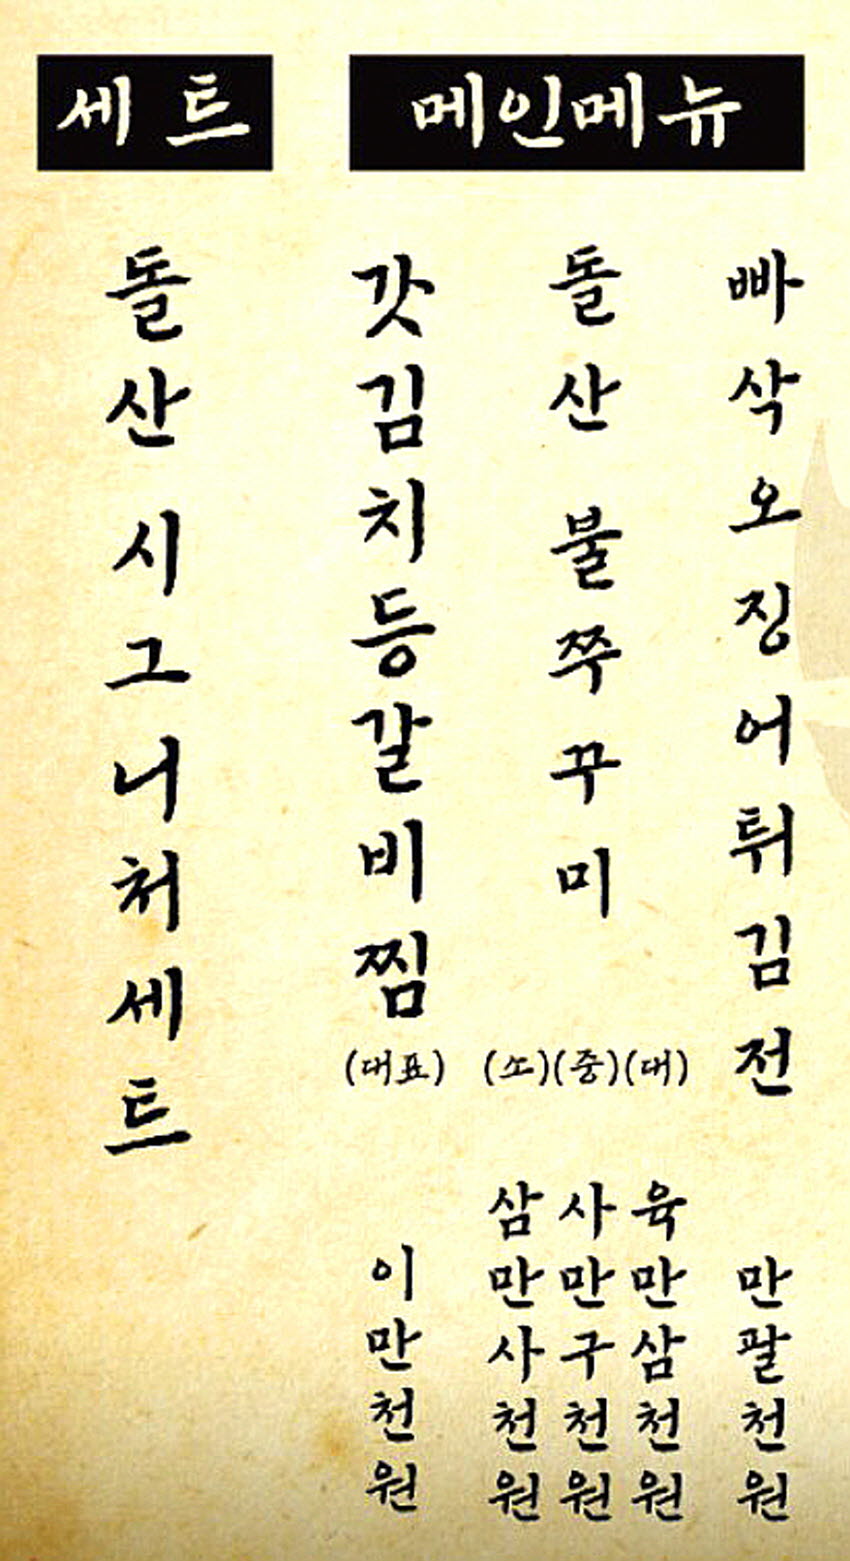 세트
돌산 시그니처세트
메인메뉴
갓김치등갈비찜
(대표)
이만천원
돌산 불쭈꾸미
(소)(중)(대)
삼만사천원
사만구천원
육만삼천원
빠삭오징어튀김전
만팔천원